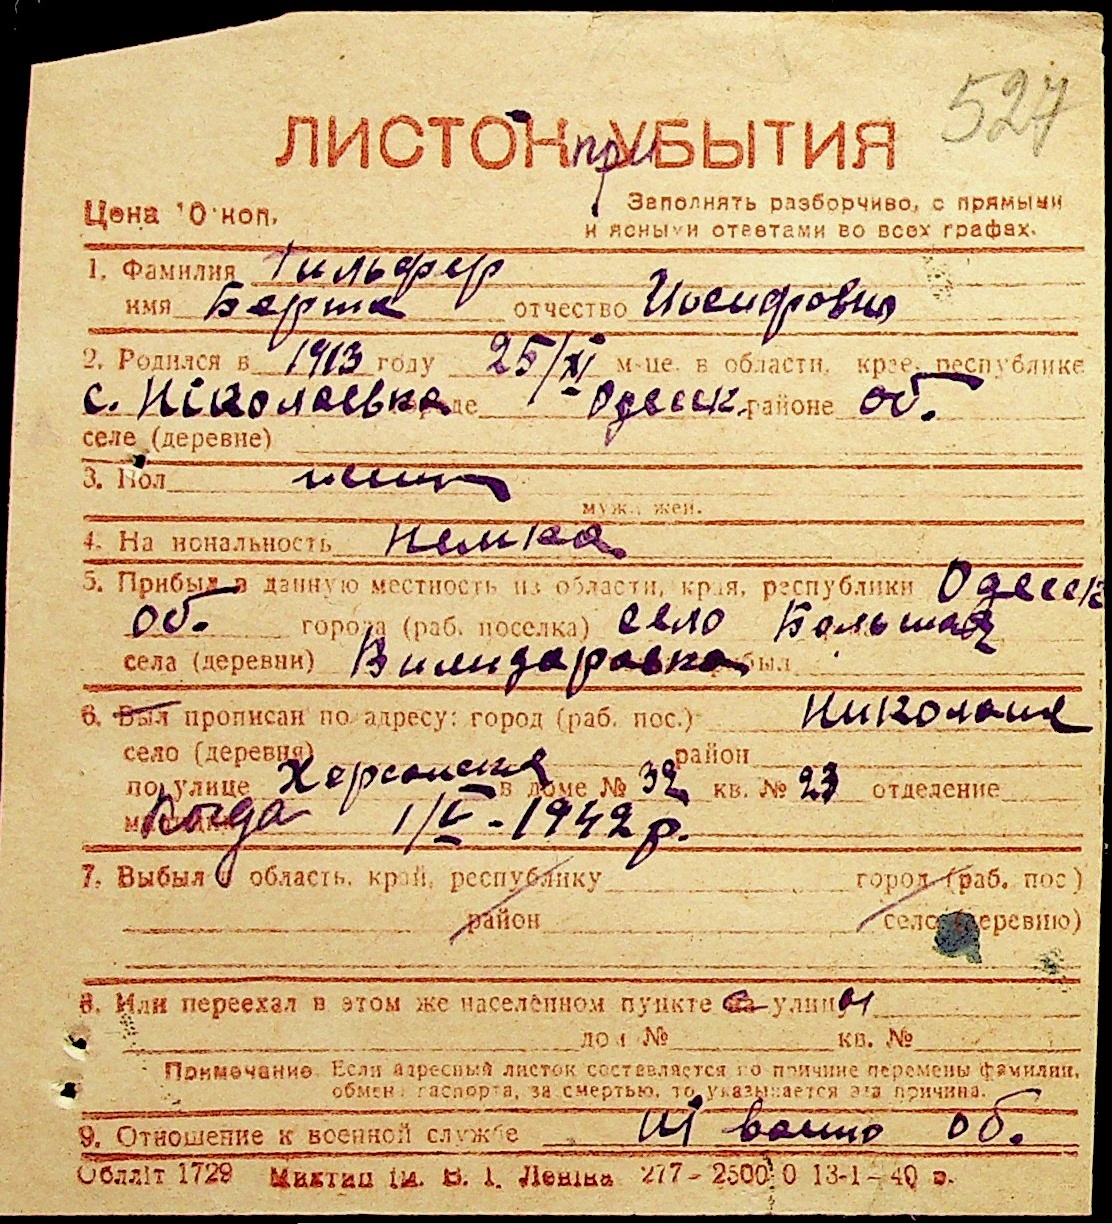 527
ЛИСТОК при УБЫТИЯ
Цена 10 коп.
Заполнять разборчиво, с прямыми
и ясными ответами во всех графах.
1. Фамилия Гильфер
имя Берта отчество Иосифовна
2. Родился в 1913 году 25/XI м-це в области, крае, республике
с. Ніколаевка городе Одесск. районе об.
селе (деревне)
3. Пол
муж., жен.
4. Национальность немка
5. Прибыл в данную местность из области, края, республики Одесск
об. города (раб. поселка) село Большая
села (деревни) прибыл
6. Был прописан по адресу: город (раб. пос.) Николаев
село (деревня) район
по улице Херсонская в доме № 32 кв. № 23 отделение
милиции Когда 1/V - 1942 р.
7. Выбыл в область, край, республику город (раб. пос)
район село (деревню)
8. Или переехал в этом же населённом пункте с улицы
дом № кв. №
Примечание. Если адресный листок составляется по причине перемены фамилии,
обмена паспорта, за смертью, то указывается эта причина.
9. Отношение к военной службе об.
Обллiт 1729 Миктип iм. В. I. Ленiна 277 - 250000 13-1-40 р.